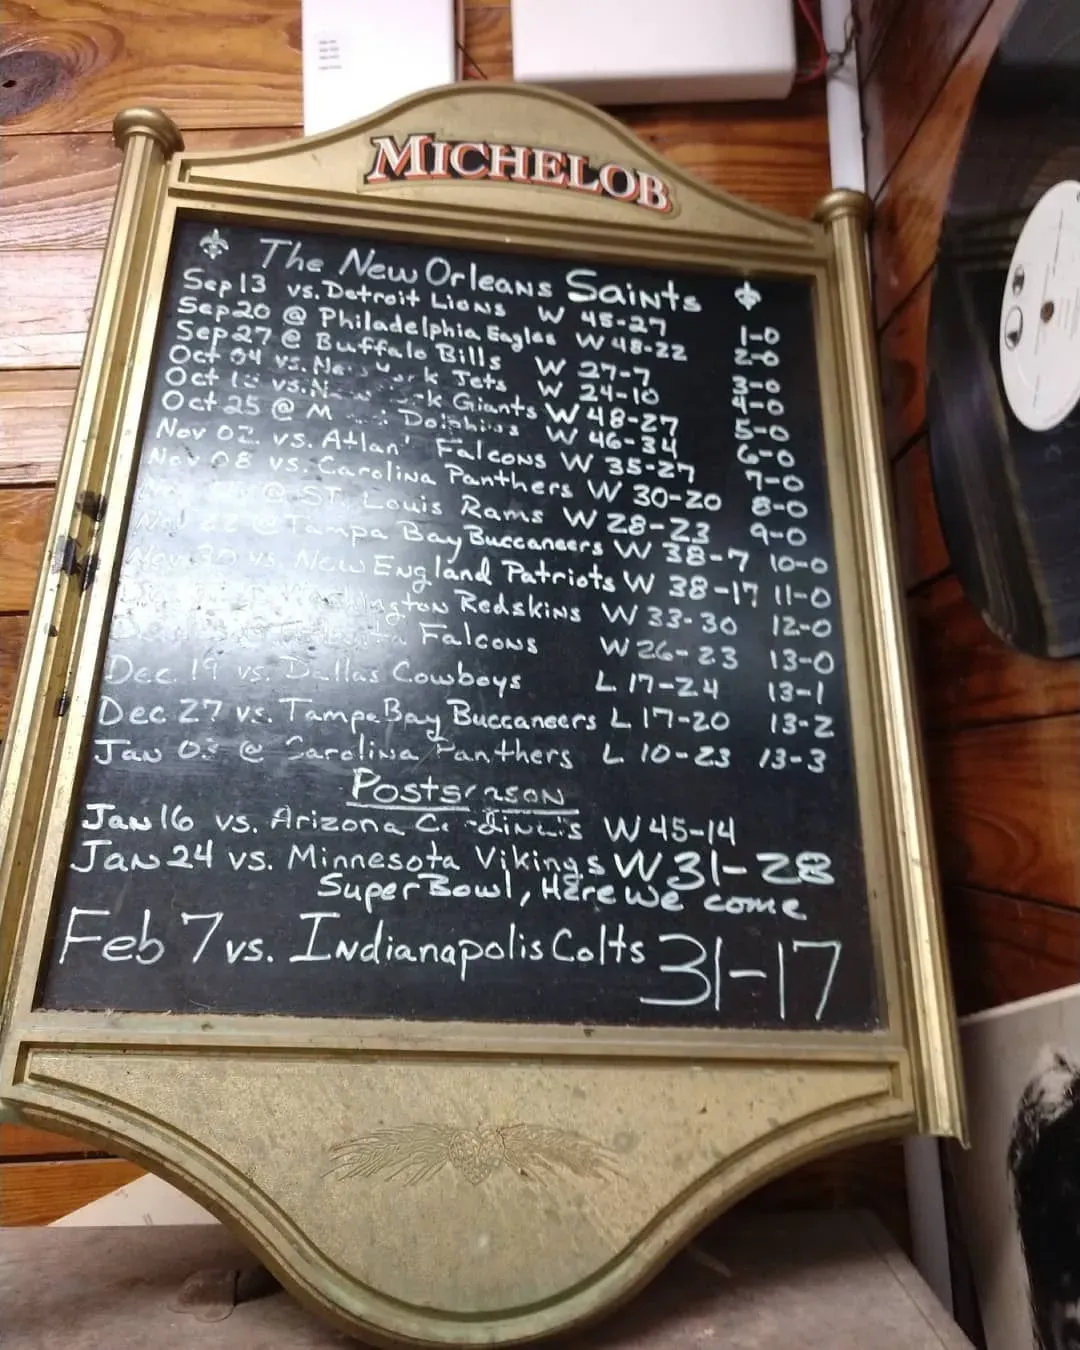 MICHELOB
The New Orleans Saints
Sep 13 vs. Detroit Lions W 45-27 1-0
Sep 20 @ Philadelphia Eagles W 48-22 2-0
Sep 27 @ Buffalo Bills W 27-7 3-0
Oct 04 vs. New York Jets W 24-10 4-0
Oct vs. Giants W 48-27 5-0
Oct 25 @ Dolphins W 46-34 6-0
Nov 02 vs. Atlan Falcons W 35-27 7-0
Nov 08 vs. Carolina Panthers W 30-20 8-0
@ ST. Louis Rams W 28-23 9-0
Nov 22 @ Tampa Bay Buccaneers W 38-7 10-0
Nov 30 vs. New England Patriots W 38-17 11-0
Redskins W 33-30 12-0
Falcons W 26-23 13-0
Dec 19 vs. Dallas Cowboys L 17-24 13-1
Dec 27 vs. Tampa Bay Buccaneers L 17-20 13-2
Jan @ Carolina Panthers L 10-23 13-3
Postseason
Jan 16 vs. Arizona Cardinals W 45-14
Jan 24 vs. Minnesota Vikings W 31-28
Super Bowl, Here we come
Feb 7 vs. Indianapolis Colts 31-17